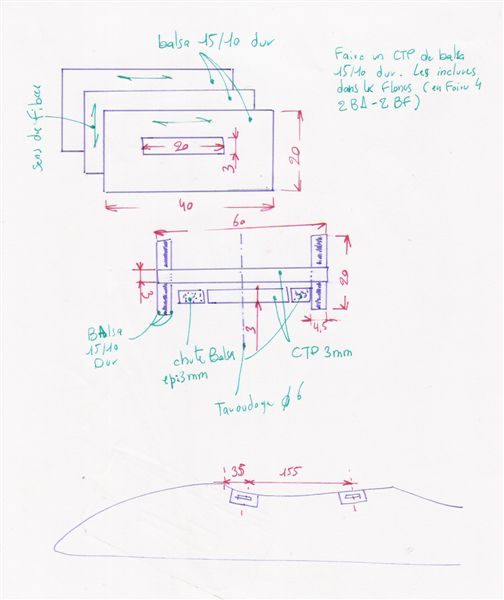 balsa 15/10 dur
Faire un CTP de balsa
15/10 dur. Les inclures
dans les Flancs (en Faire 4
2 BA - 2 BF)
sens des Fibres
20
3
20
40
60
20
3
4,5
Balsa
15/10
Dur
chute Balsa
epi3mm
CTP 3mm
Taraudage ϕ 6
35
155